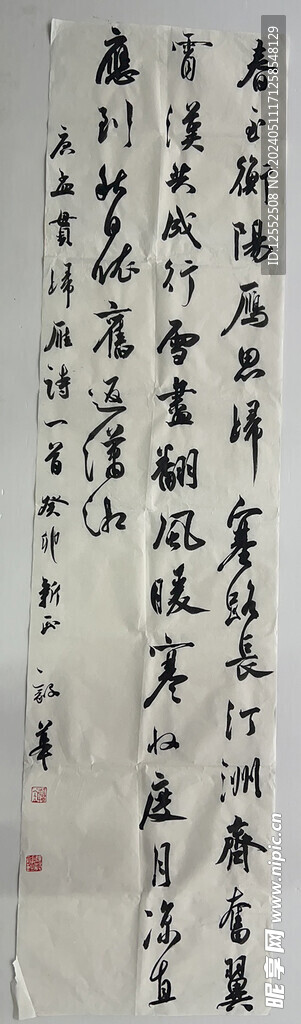 春至衡陽雁思歸塞路長汀洲齊奮翼
霄漢共成行雪盡翻風暖寒收度月涼直
應到秋日依舊返瀟湘
唐孟貫歸雁詩一首癸卯新正
華
ID:12552508 NO:20240511171258548129
昵享网 www.nipic.cn